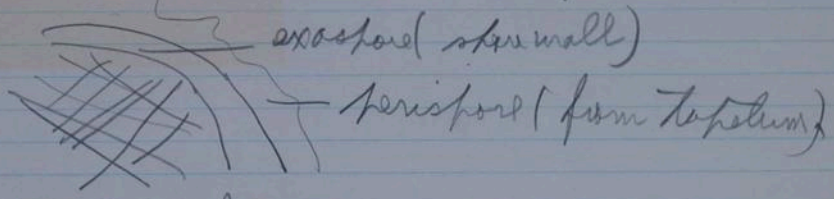 exospore (spore wall)
perispore (from tapetum)